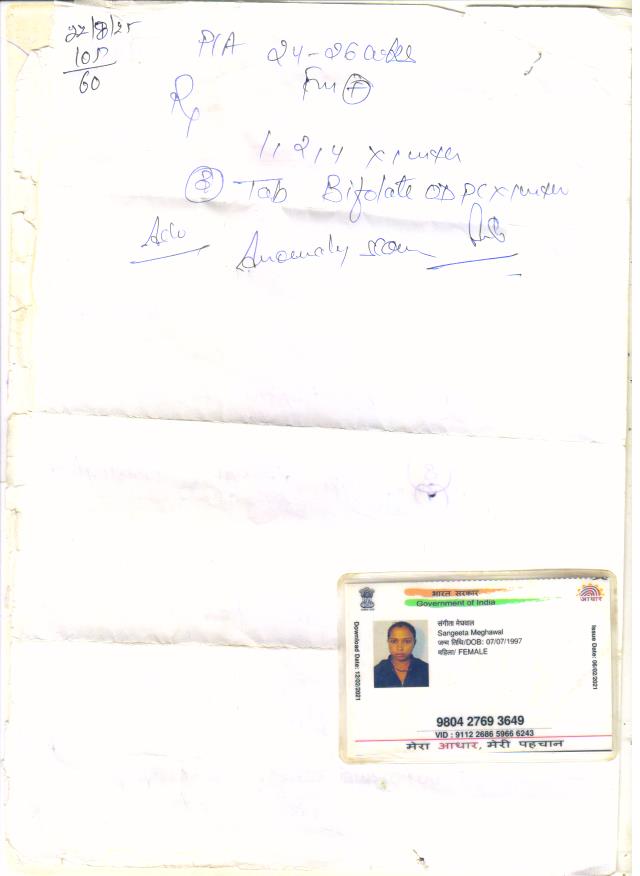 22/8/25
100
60
P/A 24-26 wks
FM (F)
Rx
1, 2, 4 x 1
8 Tab Bifolate OD PC x 1
Adv
Anomaly scan
भारत सरकार
Government of India
आधार
Download Date: 12/02/2021
Issue Date: 06/02/2021
संगीता मेघवाल
Sangeeta Meghawal
जन्म तिथि/DOB: 07/07/1997
महिला/ FEMALE
9804 2769 3649
VID : 9112 2686 5966 6243
मेरा आधार, मेरी पहचान